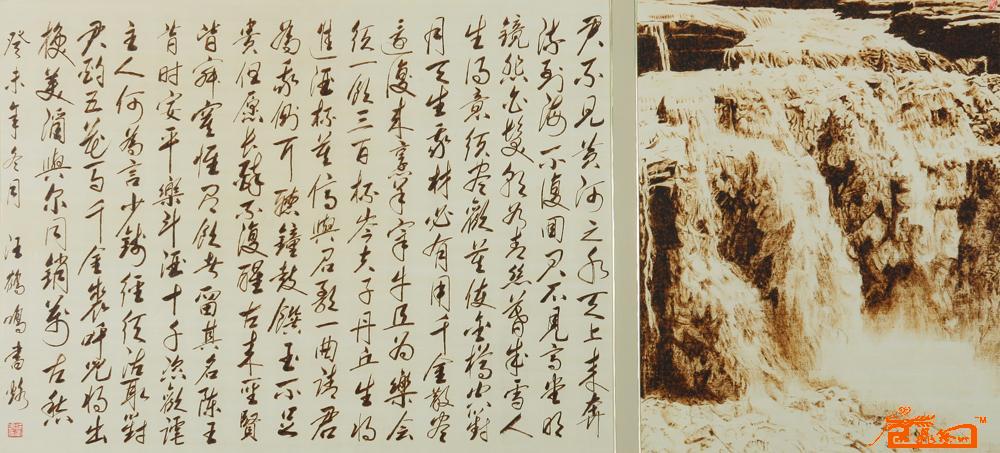 君不見黃河之水天上來奔
流到海不復回君不見高堂明
鏡悲白髮朝如青絲暮成雪人
生得意須盡歡莫使金樽空對
月天生我材必有用千金散盡
還復來烹羊宰牛且為樂會
須一飲三百杯岑夫子丹丘生將
進酒杯莫停與君歌一曲請君
為我側耳聽鐘鼓饌玉不足
貴但願長醉不復醒古來聖賢
皆寂寞惟有飲者留其名陳王
昔時宴平樂斗酒十千恣歡謔
主人何為言少錢徑須沽取對
君酌五花馬千金裘呼兒將出
換美酒與爾同銷萬古愁
癸未年冬月 汪鶴鳴書烙